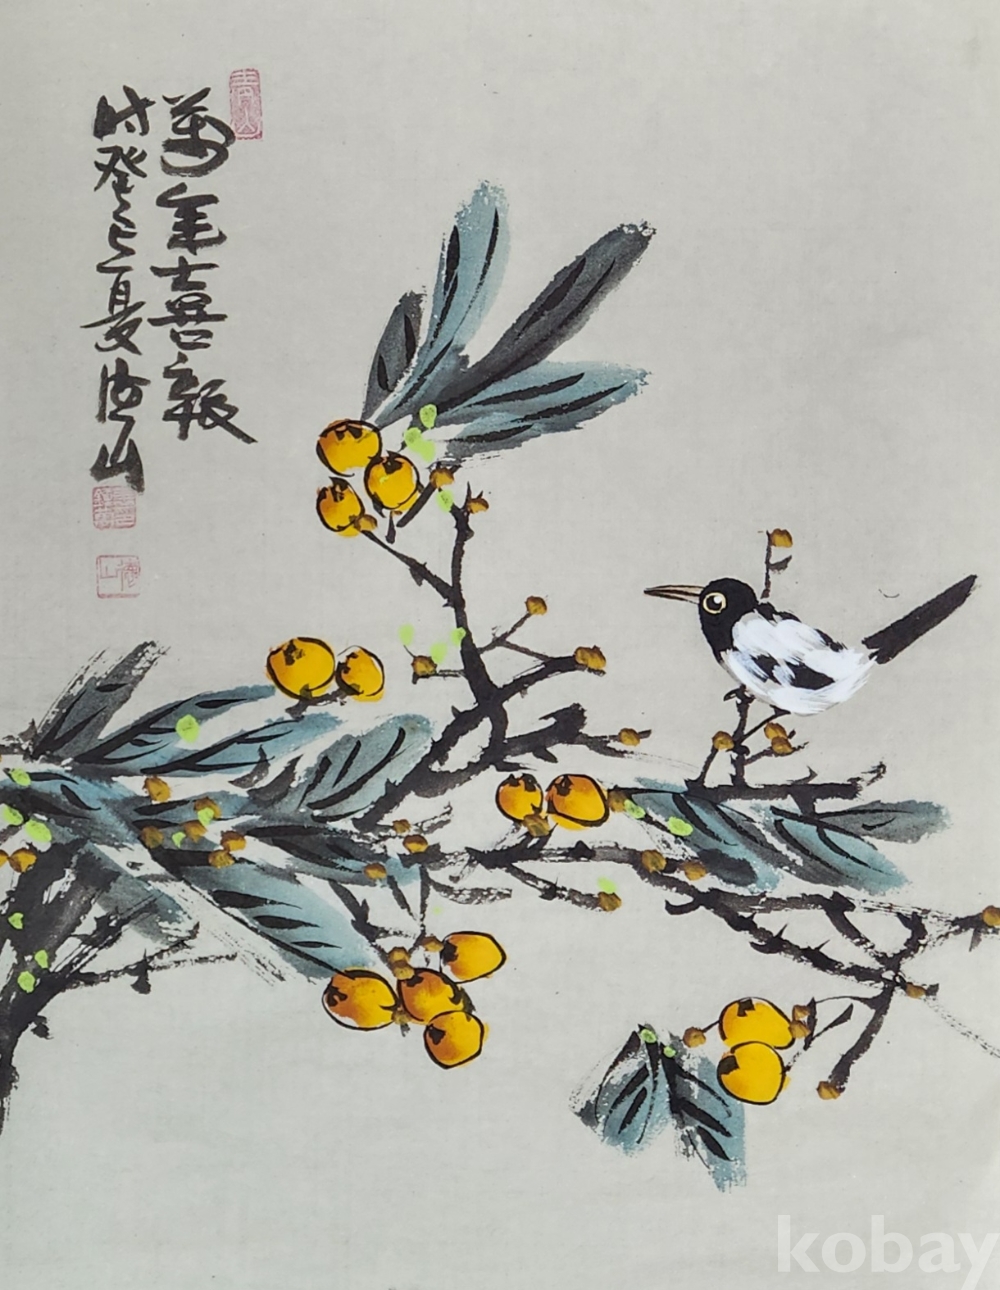 萬年喜報
时癸巳夏德山
kobay